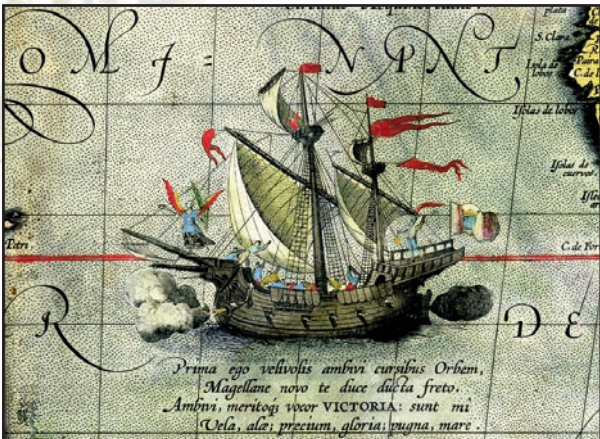 plata
S. Clara
OMI= NANT,
Isola de lobos
C. de
Isolas de lobos
Isolas de cuervos.
Petri.
C. de For
R DE
Prima ego velivolis ambivi cursibus Orbem,
Magellane novo te duce ducta freto.
Ambivi, meritoq; vocor VICTORIA: sunt mî
Vela, alæ; precium, gloria; pugna, mare.